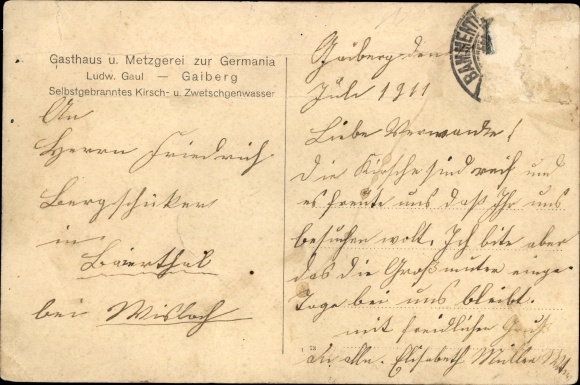 Gasthaus u. Metzgerei zur Germania
Ludw. Gaul — Gaiberg
Selbstgebranntes Kirsch- u. Zwetschgenwasser
An
Herrn Friedrich
Bergschüker
in
Baierthal
bei Wisloch
Gaiberg den
Juli 1911
Liebe Verwandte!
Die Kirsche sind reif und
es freute uns daß Ihr uns
besuchen wolt. Ich bite aber
das die Großmutter einge
Tage bei uns bleibt.
mit freidlichen Gruß
an alle. Elisabeth Müller
BAMMENT